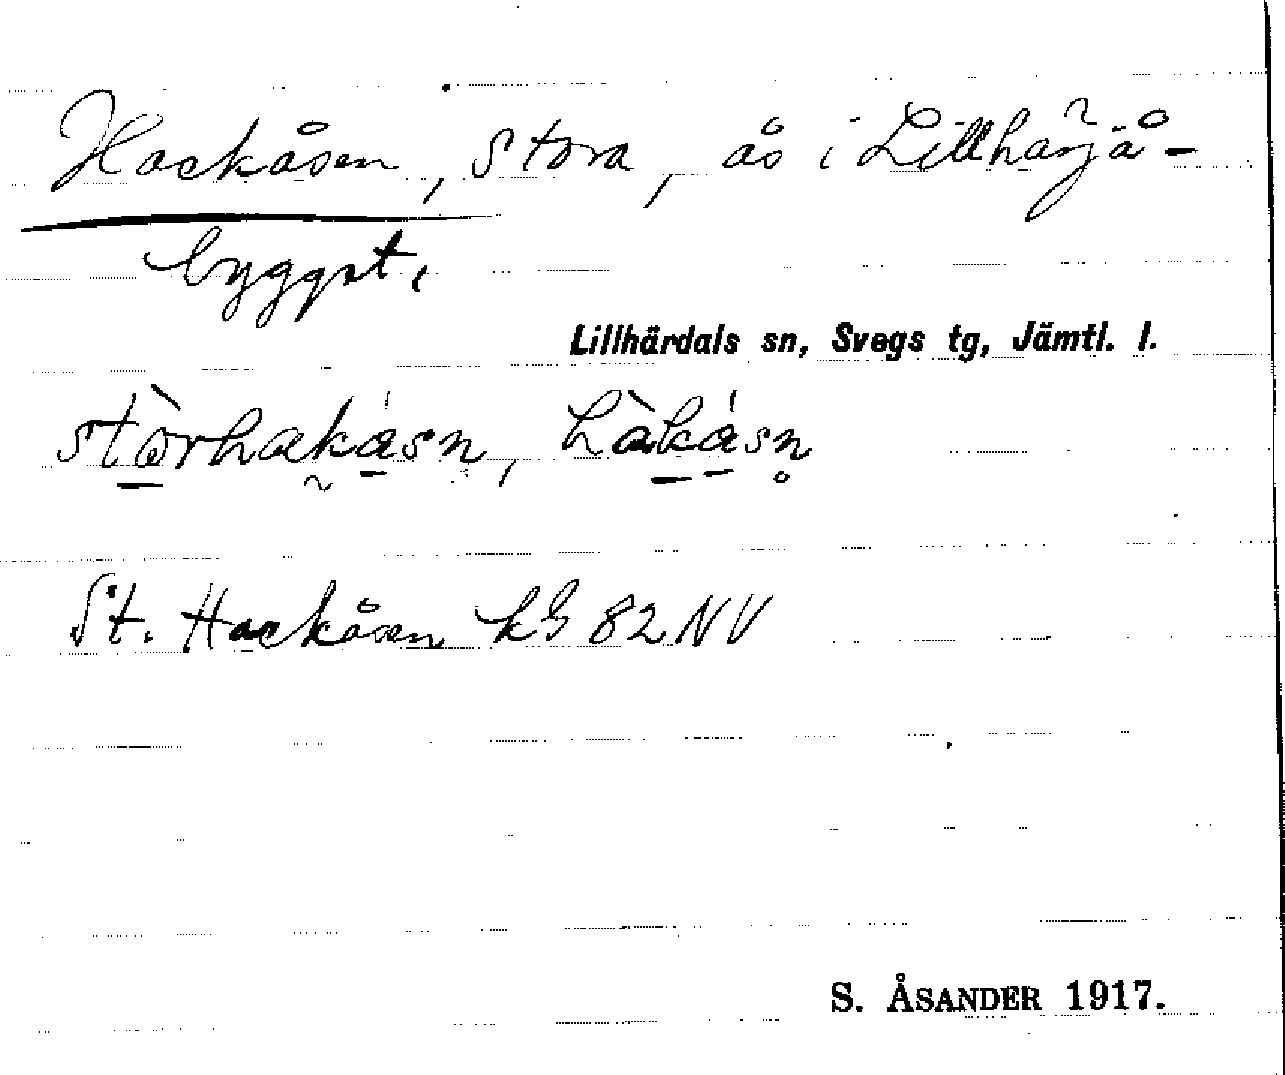 Hackåsen, Stora, ås i Lillhärjå-
byggst.
Lillhärdals sn, Svegs tg, Jämtl. l.
stòrhakåsn, hàkåsn̥
St. Hackåsen kG 82 NV
S. ÅSANDER 1917.